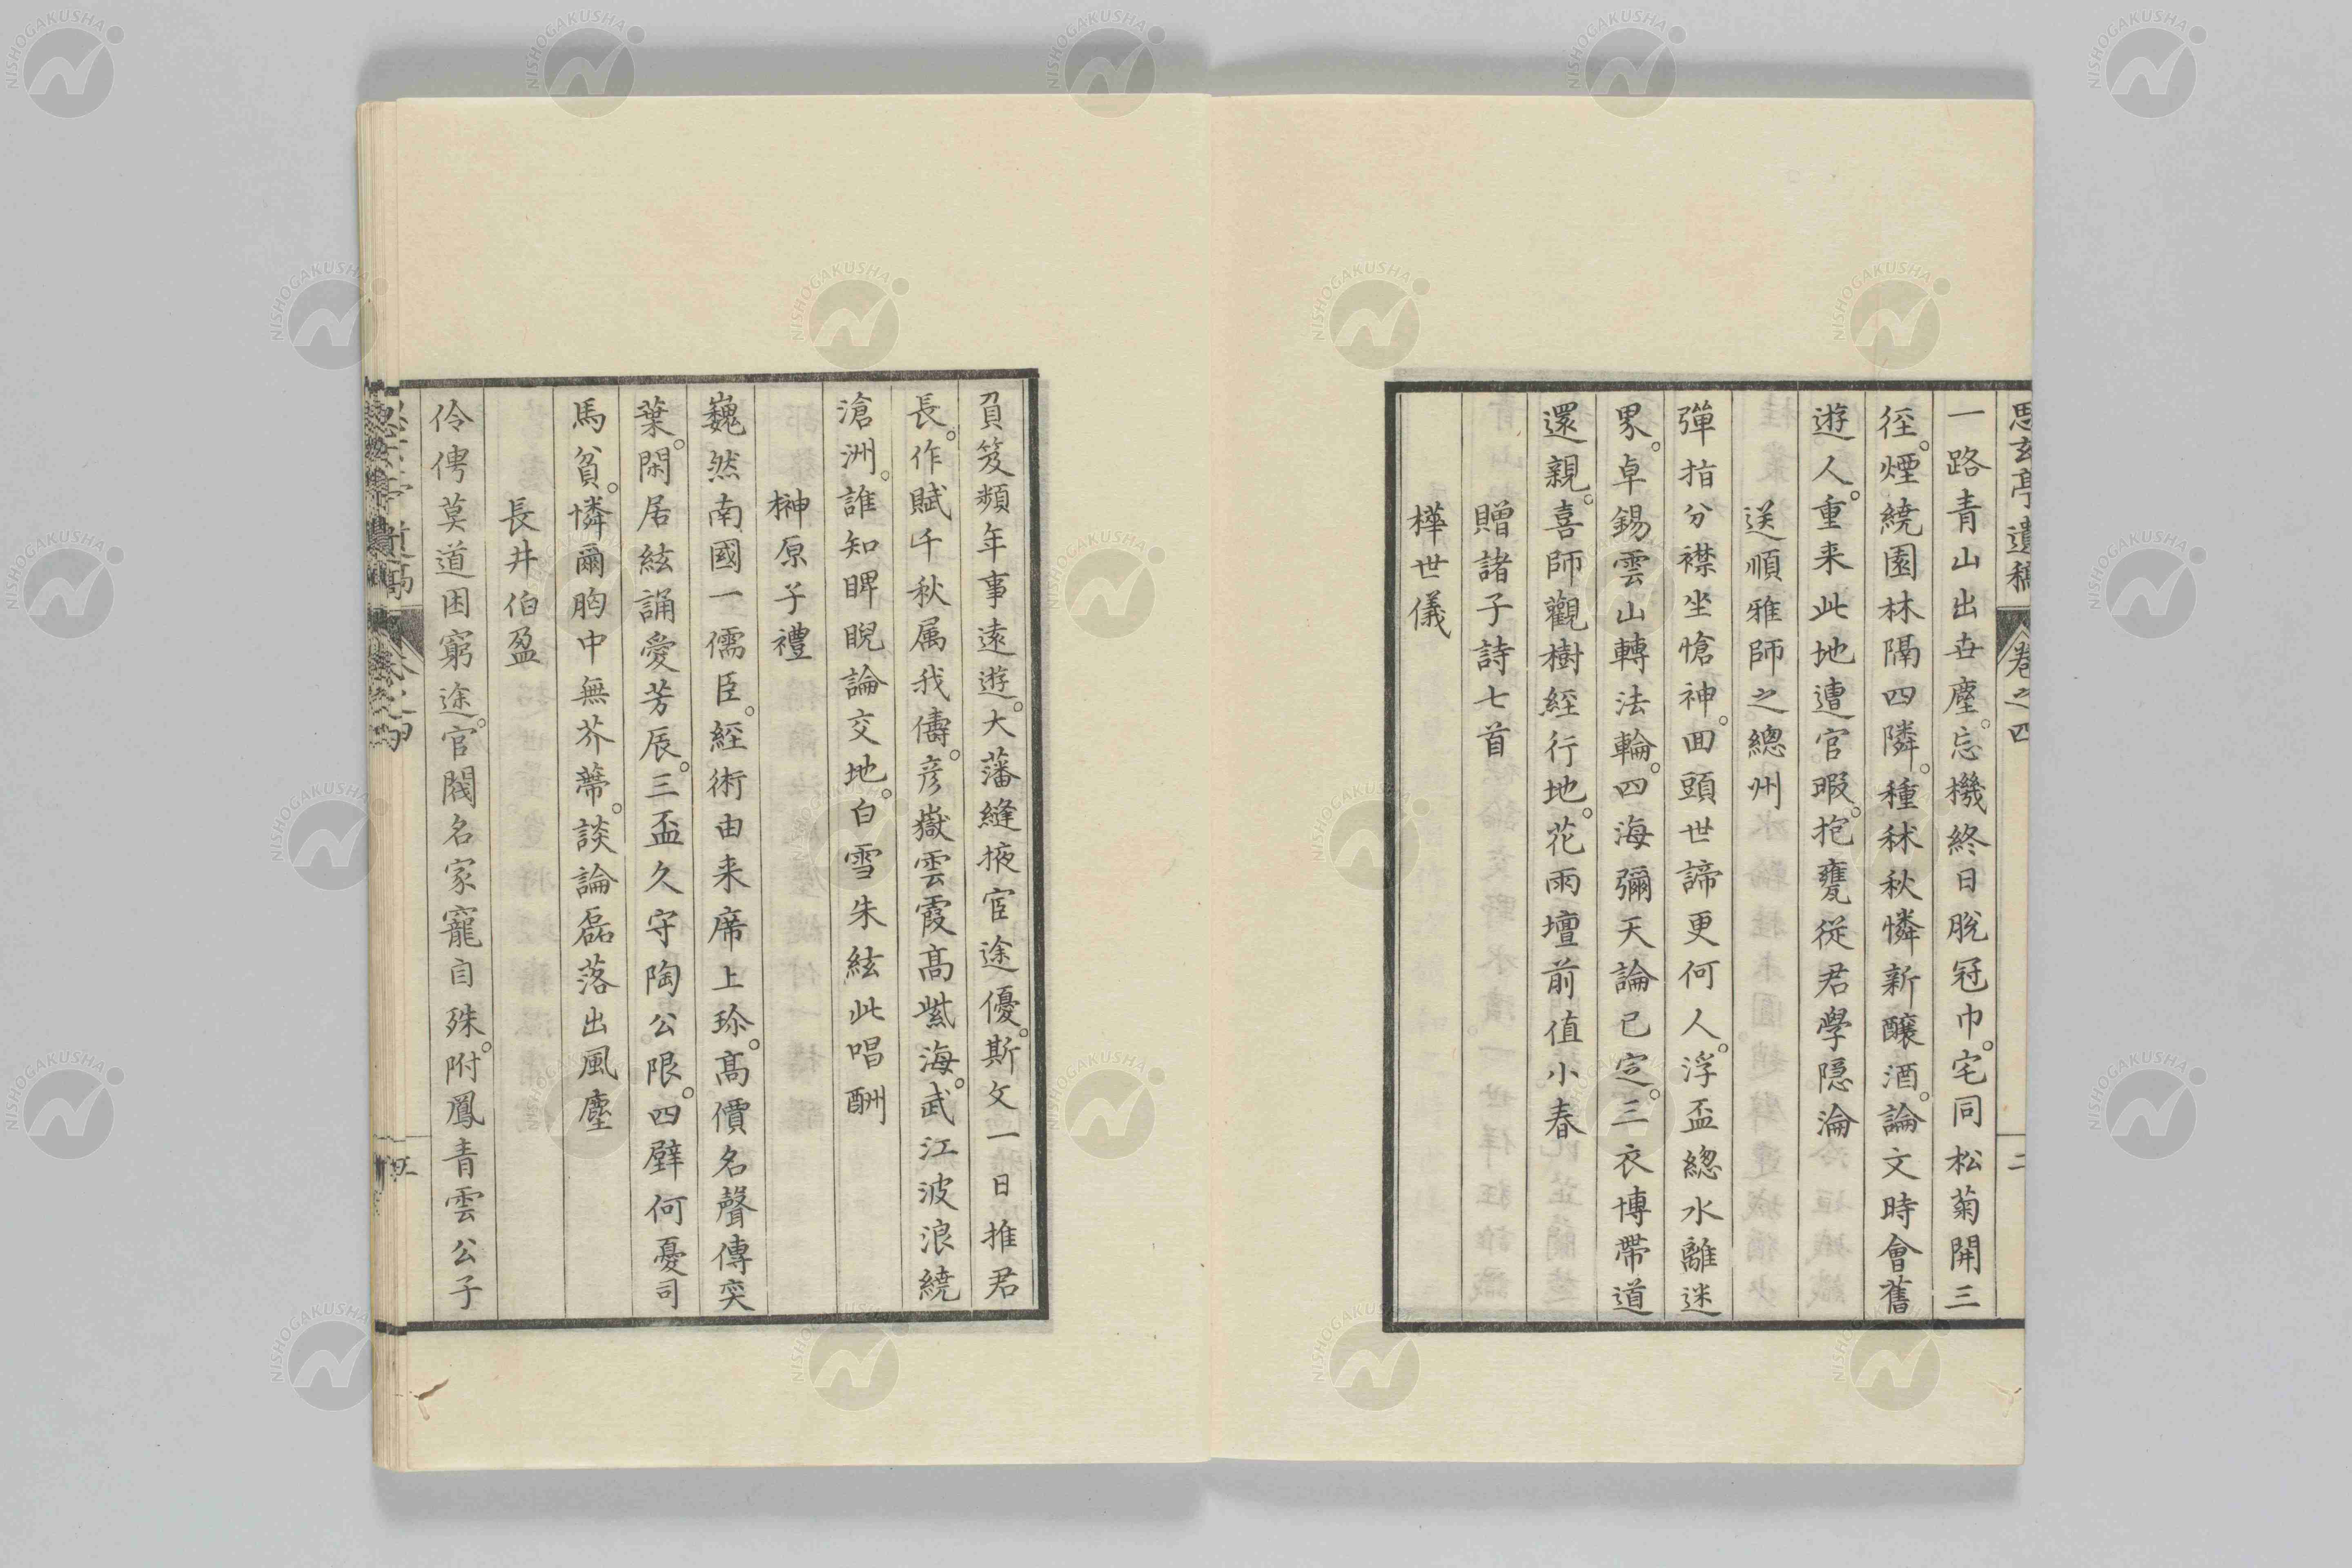 思玄亭遺稿 卷之四 二
一路青山出世塵。忘機終日脫冠巾。宅同松菊開三
徑。煙繞園林隔四隣。種秫秋憐新釀酒。論文時會舊
遊人。重来此地遭官暇。抱甕從君學隱淪
送順雅師之總州
彈指分襟坐愴神。回頭世諦更何人。浮盃總水離迷
界。卓錫雲山轉法輪。四海彌天論已定。三衣博帶道
還親。喜師觀樹經行地。花雨壇前值小春
贈諸子詩七首
樺世儀
負笈頻年事遠遊。大藩縫掖宦途優。斯文一日推君
長。作賦千秋属我儔。彦嶽雲霞高紫海。武江波浪繞
滄洲。誰知睥睨論交地。白雪朱絃此唱酬
榊原子禮
巍然南國一儒臣。經術由来席上珍。高價名聲傳奕
葉。閑居絃誦愛芳辰。三盃久守陶公限。四壁何憂司
馬貧。憐爾胸中無芥蔕。談論磊落出風塵
長井伯盈
伶俜莫道困窮途。官閥名家寵自殊。附鳳青雲公子
NISHOGAKUSHA